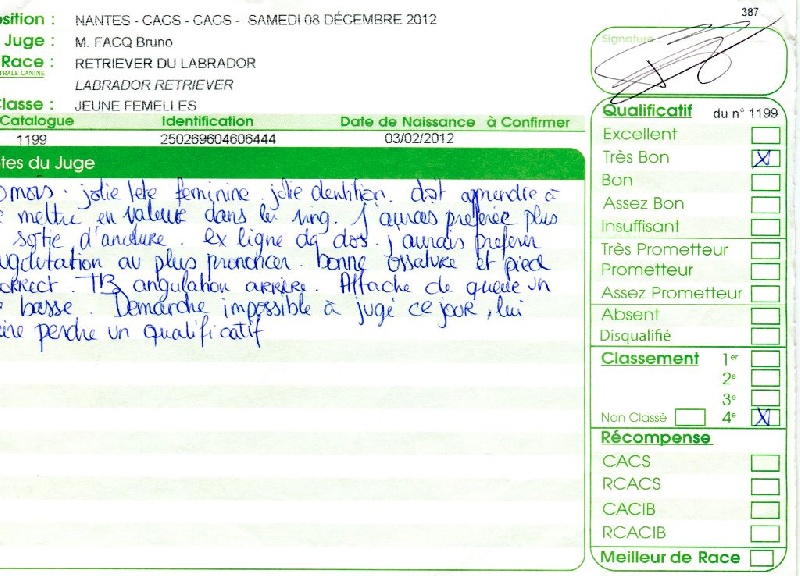 387
osition : NANTES - CACS - CACS - SAMEDI 08 DÉCEMBRE 2012
Juge : M. FACQ Bruno
Race : RETRIEVER DU LABRADOR
TRALE CANINE
LABRADOR RETRIEVER
Classe : JEUNE FEMELLES
Catalogue Identification Date de Naissance à Confirmer
1199 250269604606444 03/02/2012
tes du Juge
10mois. jolie tete feminine jolie dentition. doit apprendre à
mettre en valeur dans le ring. j'aurais préférée plus
sortie, d'encolure. ex ligne de dos. j'aurais préférer
angulation av plus prononcer. bonne ossature et pied
correct. TB angulation arrière. Attache de queue un
basse. Demarche impossible à jugé ce jour, lui
perdre un qualificatif
Signature
Qualificatif du n° 1199
Excellent
Très Bon X
Bon
Assez Bon
Insuffisant
Très Prometteur
Prometteur
Assez Prometteur
Absent
Disqualifié
Classement 1er
2e
3e
Non Classé 4e X
Récompense
CACS
RCACS
CACIB
RCACIB
Meilleur de Race